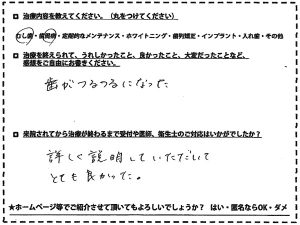 治療内容を教えてください。（丸をつけてください）
むし歯・歯周病・定期的なメンテナンス・ホワイトニング・歯列矯正・インプラント・入れ歯・その他
治療を終えられて、うれしかったこと、良かったこと、大変だったことなど、
感想をご自由にお書きください。
歯がつるつるになった
来院されてから治療が終わるまで受付や医師、衛生士のご対応はいかがでしたか？
詳しく説明していただいて
とても良かった。
★ホームページ等でご紹介させて頂いてもよろしいでしょうか？ はい・匿名ならOK・ダメ